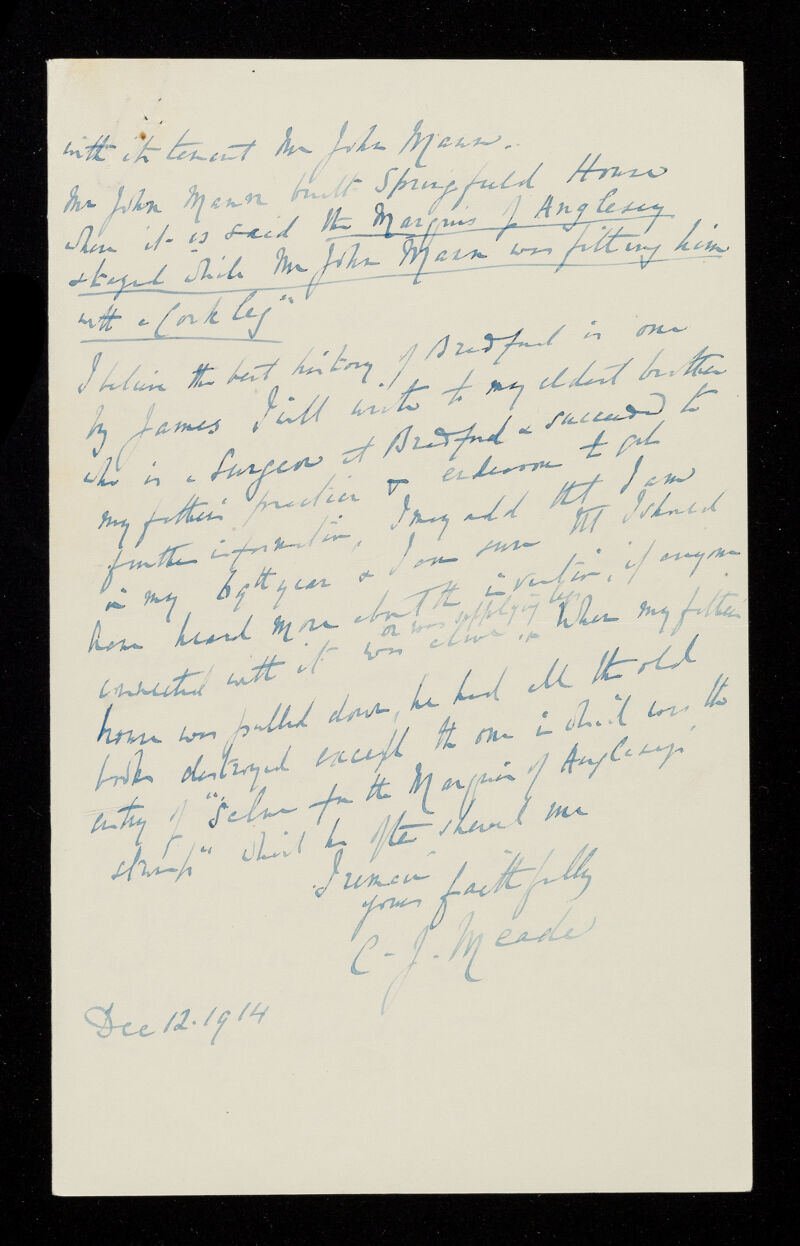 with its tenant Mr John Mann.
Mr John Mann built Springfield House
where it is said the Marquis of Anglesey
stayed while Mr John Mann was fitting him
with a Cork leg"
I believe the best history of Bradford is one
by James I will write to my eldest brother
who is a Surgeon at Bradford & succeeded to
my father's practice & endeavour to get
further information, I may add that I am
in my 69th year & I am sure that I should
have heard more about the invention, if anyone
connected with it was alive or was supplying legs. When my father's
house was pulled down, he had all the old
books destroyed except the one in which was the
entry of "Salve for the Marquis of Anglesey's
stump" which he often shewed me
I remain
yours faithfully
C. J. Meade
Dec 12. 1914